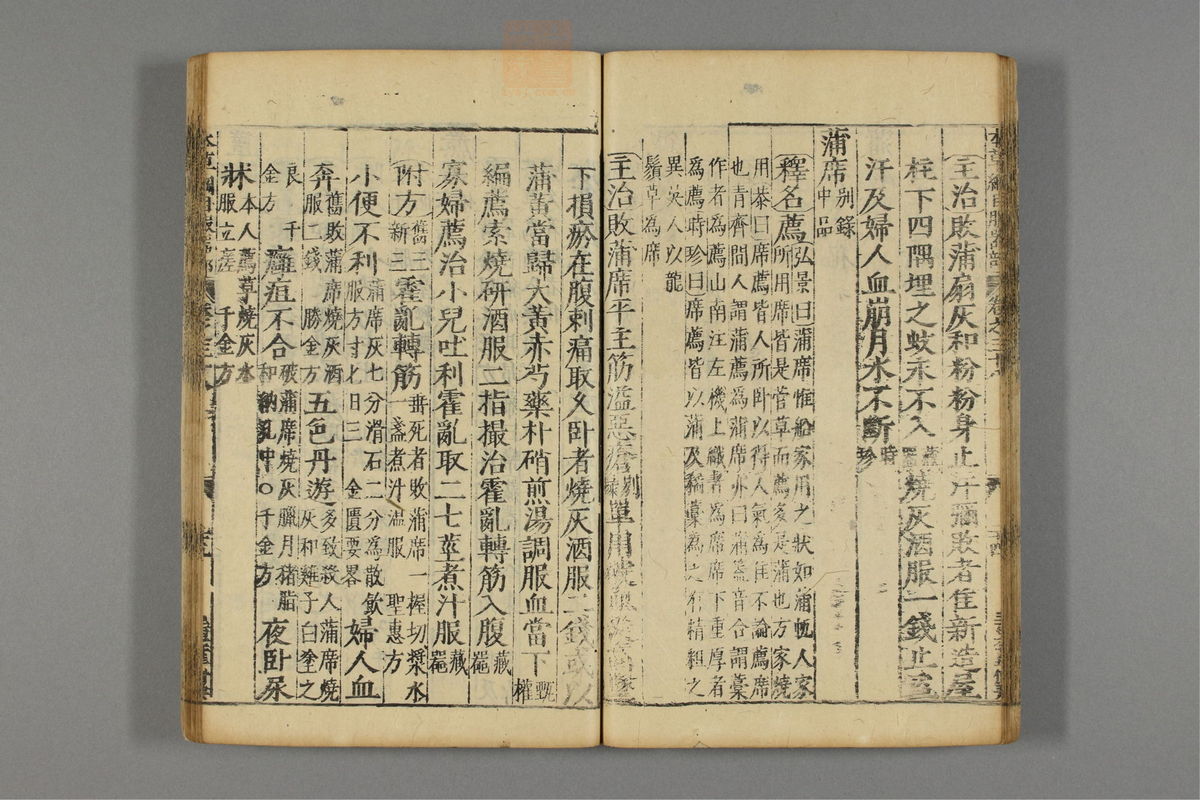 主治敗蒲扇灰和粉粉身止汗彌敗者佳新造屋
柱下四隅埋之蚊永不入藏器燒灰酒服一錢止盜
汗及婦人血崩月水不斷時珍
蒲席別錄中品
釋名薦弘景曰蒲席惟船家用之狀如蒲帆人家
所用席皆是菅草而薦多是蒲也方家燒
用恭曰席薦皆人所臥以得人氣為佳不論薦席
也青齊間人謂蒲薦為蒲席亦曰蒲蓋音合謂藁
作者為薦山南江左機上織者為席席下重厚者
為薦時珍曰席薦皆以蒲及稻藁為之有精粗之
異吳人以龍
鬚草為席
主治敗蒲席平主筋溢惡瘡別錄單用破血從高墜
下損瘀在腹刺痛取久臥者燒灰酒服二錢或以
蒲黃當歸大黃赤芍藥朴硝煎湯調服血當下甄權
編薦索燒研酒服二指撮治霍亂轉筋入腹藏器
寡婦薦治小兒吐利霍亂取二七莖煮汁服藏器
附方舊三新三霍亂轉筋垂死者敗蒲席一握切漿水一盞煮汁溫服聖惠方
小便不利蒲席灰七分滑石二分為散飲服方寸匕日三金匱要略婦人血
奔舊敗蒲席燒灰酒服二錢勝金方五色丹遊多致殺人蒲席燒灰和雞子白塗之
良千金方癰疽不合破蒲席燒灰臘月豬脂和納孔中○千金方夜臥尿
牀本人薦草燒灰水服立瘥千金方